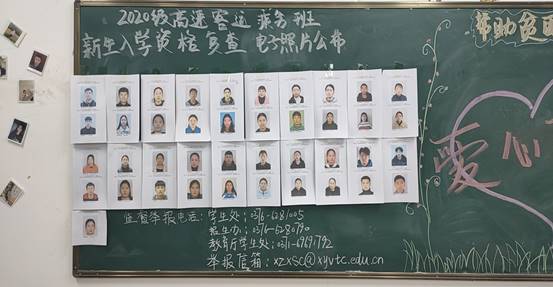 2020级高速客运乘务班
新生入学资格复查 电子照片公布
帮助贫困
爱心
监督举报电话: 学生处: 0376-6281005
招生办: 0376-6280790
教育厅学生处: 0371-69691792
举报信箱: xzxsc@xyvtc.edu.cn